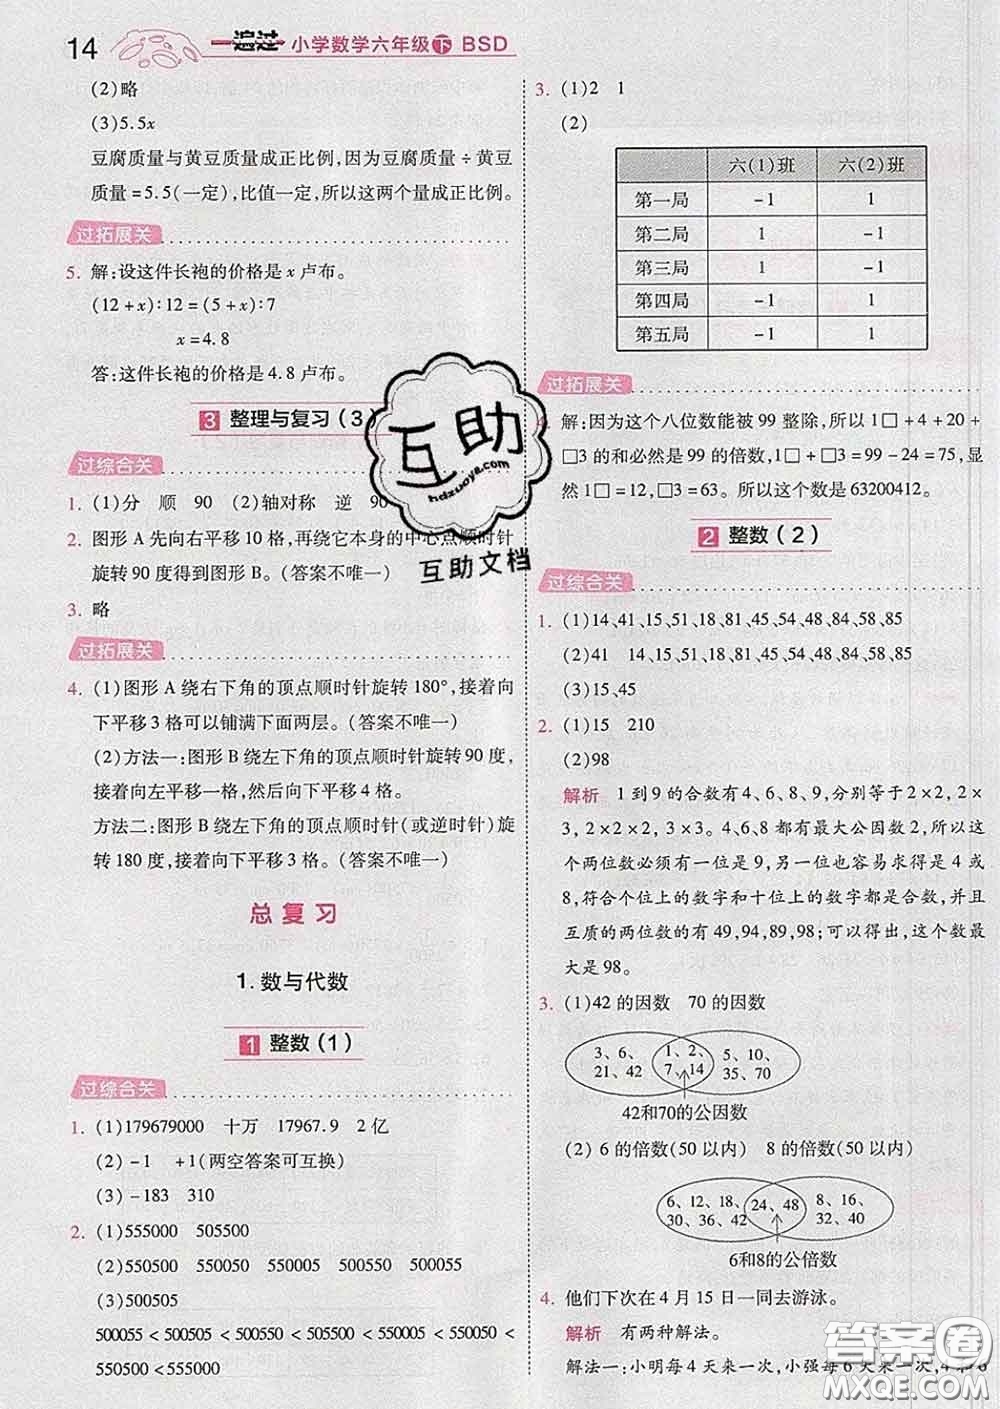 14 一遍过 小学数学六年级下 BSD
(2)略
(3)5.5x
豆腐质量与黄豆质量成正比例,因为豆腐质量÷黄豆
质量=5.5(一定),比值一定,所以这两个量成正比例。
过拓展关
5. 解:设这件长袍的价格是 x 卢布。
(12+x):12=(5+x):7
x=4.8
答:这件长袍的价格是4.8卢布。
3 整理与复习(3)
过综合关
1. (1)分 顺 90 (2)轴对称 逆 90
2. 图形 A 先向右平移 10 格,再绕它本身的中心点顺时针
旋转 90 度得到图形 B。(答案不唯一)
3. 略
过拓展关
4. (1)图形 A 绕右下角的顶点顺时针旋转 180°,接着向
下平移 3 格可以铺满下面两层。(答案不唯一)
(2)方法一:图形 B 绕左下角的顶点顺时针旋转 90 度,
接着向左平移一格,然后向下平移 4 格。
方法二:图形 B 绕左下角的顶点顺时针(或逆时针)旋
转 180 度,接着向下平移 3 格。(答案不唯一)
总复习
1. 数与代数
1 整数(1)
过综合关
1. (1)179679000 十万 17967.9 2 亿
(2)-1 +1(两空答案可互换)
(3)-183 310
2. (1)555000 505500
(2)550500 550050 555005 500550 500055
(3)500505
500055<500505<500550<505500<550005<550050<
550500<555000
3. (1)2 1
(2)
六(1)班 六(2)班
第一局 -1 1
第二局 1 -1
第三局 1 -1
第四局 -1 1
第五局 -1 1
过拓展关
解:因为这个八位数能被 99 整除,所以 1□+4+20+
□3 的和必然是 99 的倍数,1□+□3=99-24=75,显
然 1□=12,□3=63。所以这个数是 63200412。
2 整数(2)
过综合关
1. (1)14、41、15、51、18、81、45、54、48、84、58、85
(2)41 14、15、51、18、81、45、54、48、84、58、85
(3)15、45
2. (1)15 210
(2)98
解析 1 到 9 的合数有 4、6、8、9,分别等于 2×2, 2×
3, 2×2×2, 3×3。4、6、8 都有最大公因数 2,所以这
个两位数必须有一位是 9,另一位也容易求得是 4 或
8,符合个位上的数字和十位上的数字都是合数,并且
互质的两位数有 49,94,89,98;可以得出,这个数最
大是 98。
3. (1)42 的因数 70 的因数
3、6、 1、2、 5、10、
21、42 7、14 35、70
42和70的公因数
(2) 6 的倍数(50 以内) 8 的倍数(50 以内)
6、12、18、 24、48 8、16、
30、36、42 32、40
6和8的公倍数
4. 他们下次在 4 月 15 日一同去游泳。
解析 有两种解法。
解法一:小明每 4 天来一次,小强每 6 天来一次,4 和 6
互助
hdzuoye.com
互助文档
答案圈
MXQE.COM